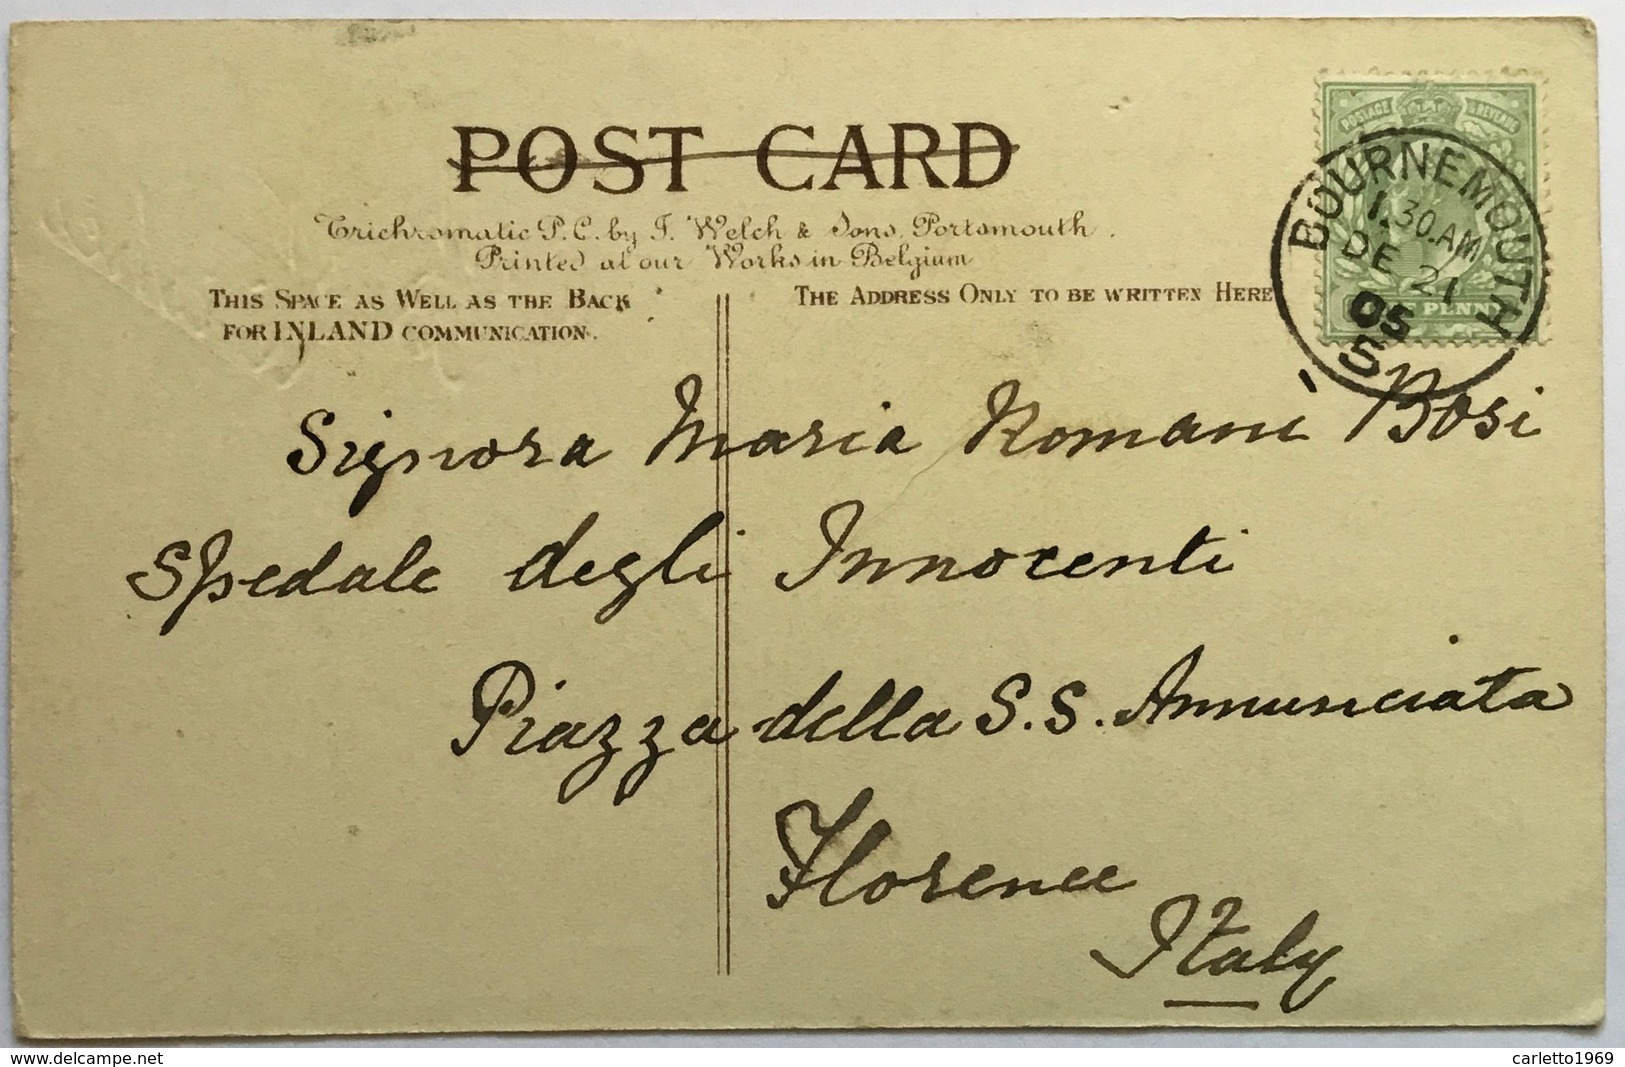 POST CARD
Trichromatic P.C. by J. Welch & Sons, Portsmouth.
Printed at our Works in Belgium
THIS SPACE AS WELL AS THE BACK
FOR INLAND COMMUNICATION.
THE ADDRESS ONLY TO BE WRITTEN HERE
POSTAGE & REVENUE
PENNY
BOURNEMOUTH
1.30.AM
DE 21
05
5
Signora Maria Romani Bosi
Spedale degli Innocenti
Piazza della S.S. Annunciata
Florence
Italy
www.delcampe.net
carletto1969